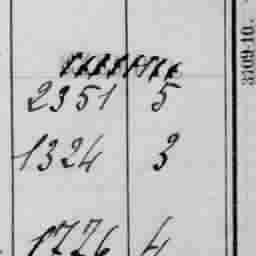 2351 5
1324 3
1776 4
3709-10.